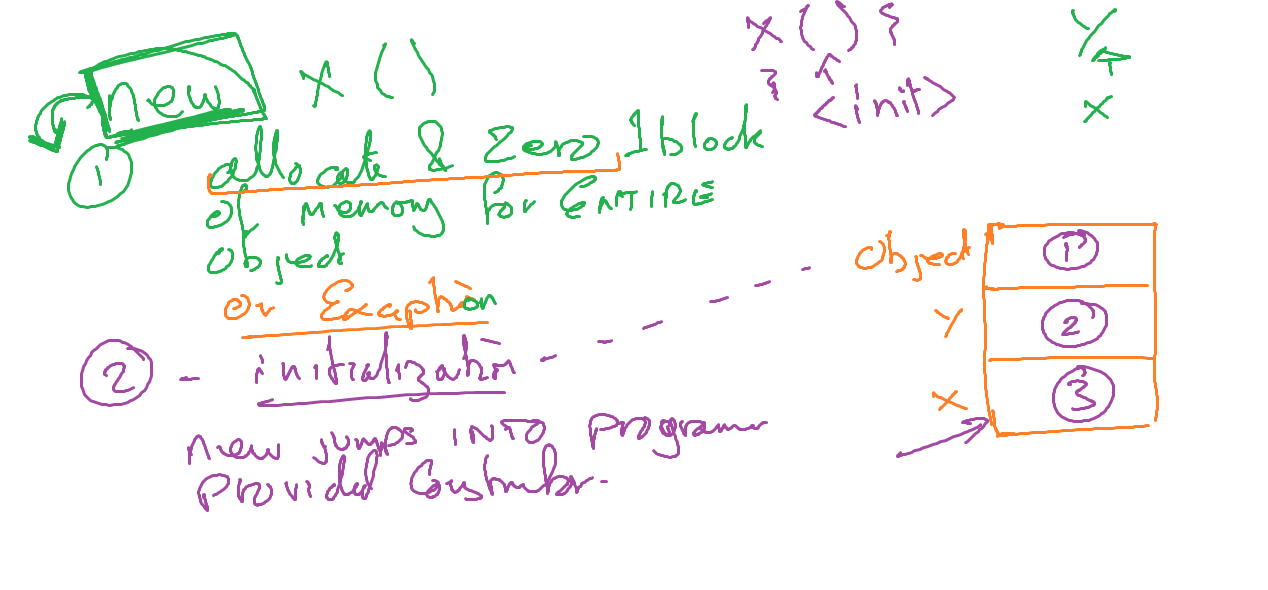 new X ()
① allocate & Zero 1 block
of memory for ENTIRE
object
or Exception
② - initialization - - - - - -
new jumps INTO programer
provided Constructor.
X () {
} <init>
Y
X
Object ①
Y ②
X ③